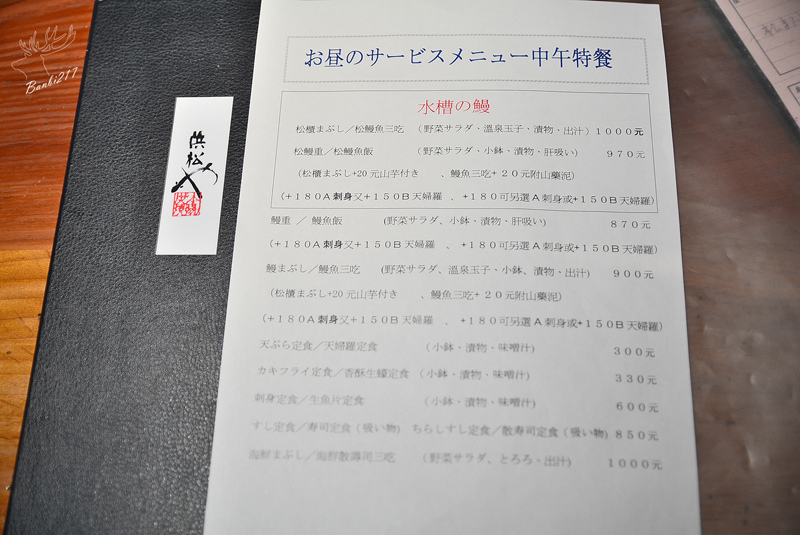 Banbi217
浜松や
お昼のサービスメニュー中午特餐
水槽の鰻
松櫃まぶし／松鰻魚三吃 （野菜サラダ・溫泉玉子・漬物・出汁）１０００元
松鰻重／松鰻魚飯 （野菜サラダ・小鉢・漬物・肝吸い） ９７０元
（松櫃まぶし+20元山芋付き 、鰻魚三吃+２０元附山藥泥）
（+１８０A刺身又+１５０B天婦羅 、+１８０可另選A刺身或+150B天婦羅）
鰻重／鰻魚飯 （野菜サラダ、小鉢・漬物・肝吸い） ８７０元
（+１８０A刺身又+１５０B天婦羅 、+１８０可另選A刺身或+150B天婦羅）
鰻まぶし／鰻魚三吃 （野菜サラダ、溫泉玉子・小鉢、漬物・出汁） ９００元
（松櫃まぶし+20元山芋付き 、鰻魚三吃+２０元附山藥泥）
（+１８０A刺身又+１５０B天婦羅 、+１８０可另選A刺身或+150B天婦羅）
天ぷら定食／天婦羅定食 （小鉢・漬物・味噌汁） ３００元
カキフライ定食／香酥生蠔定食 （小鉢・漬物・味噌汁） ３３０元
刺身定食／生魚片定食 （小鉢・漬物・味噌汁） ６００元
すし定食／寿司定食（吸い物） ちらしすし定食／散寿司定食（吸い物） ８５０元
海鮮まぶし／海鮮散壽司三吃 （野菜サラダ、とろろ、出汁） １０００元